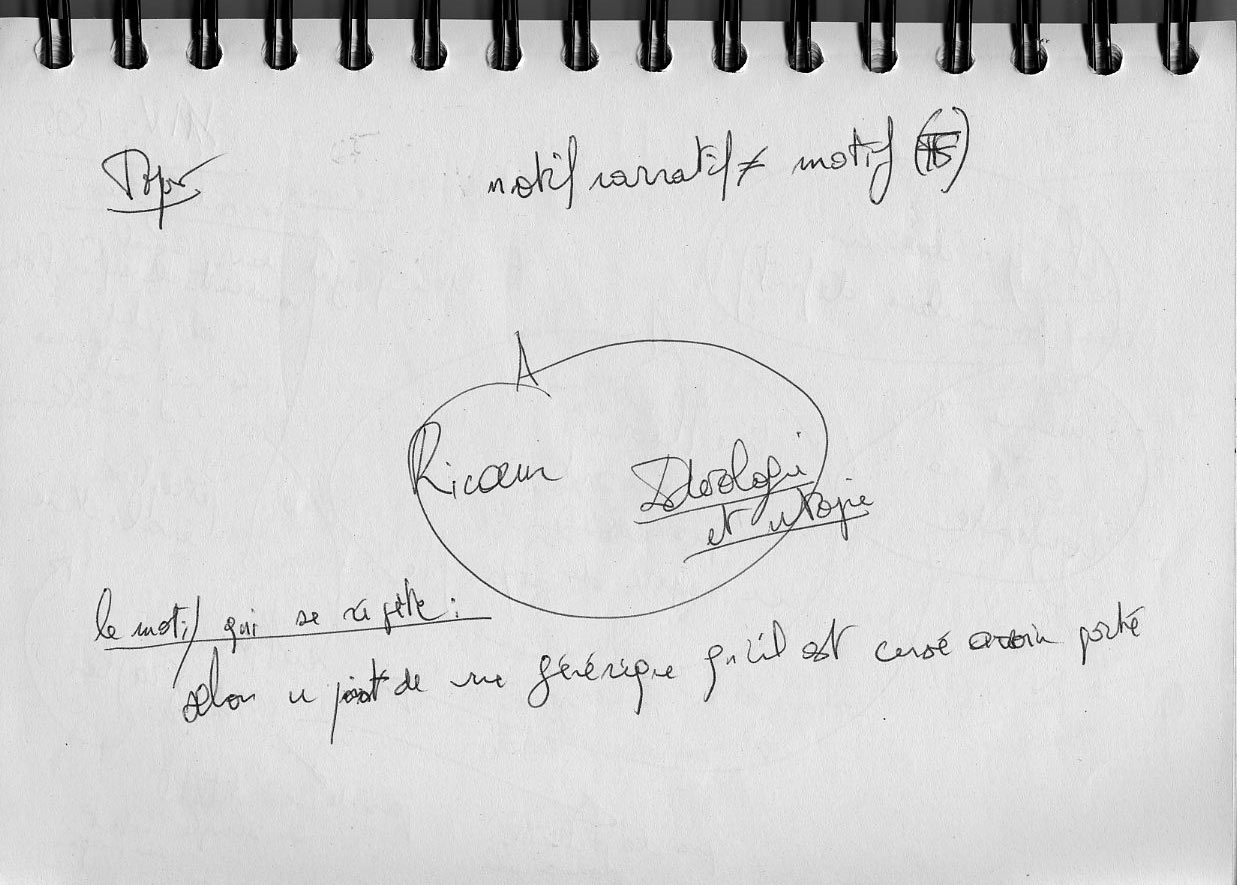 motif narratif ≠ motif
A
Ricœur
Idéologie
et utopie
le motif qui se répète :
selon u point de vue générique qu'il est censé avoir porté